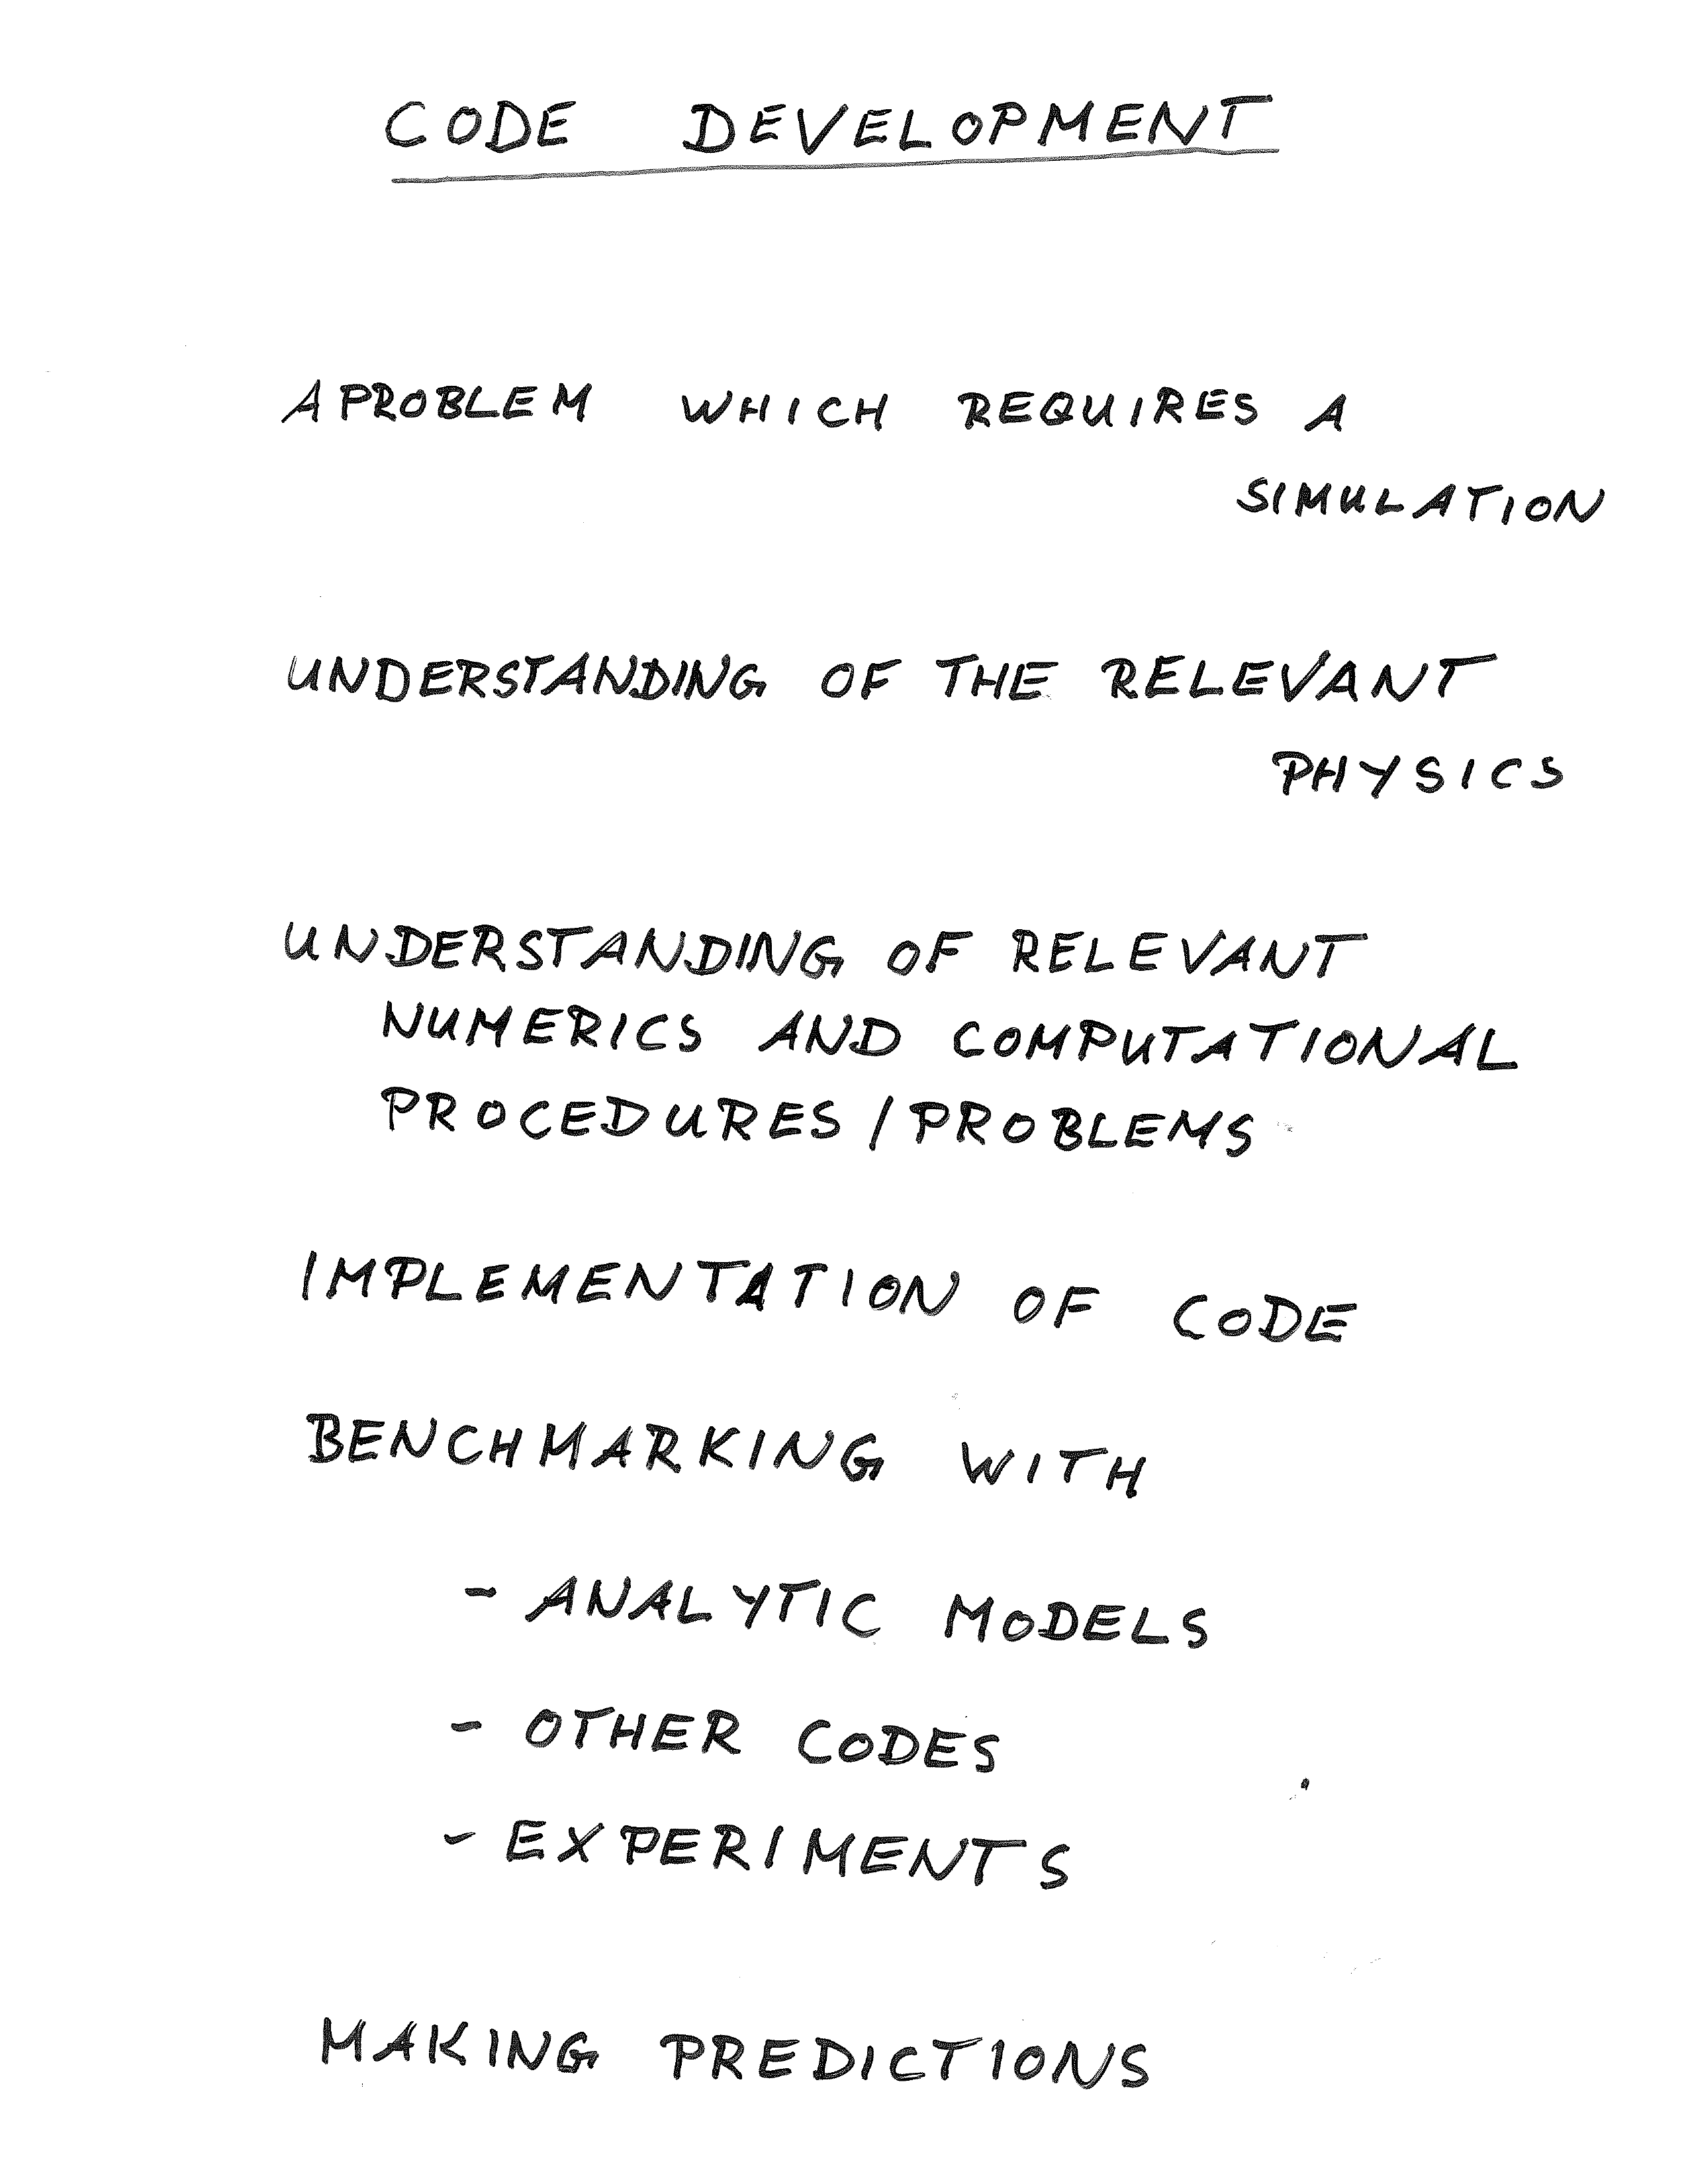 CODE DEVELOPMENT
A PROBLEM WHICH REQUIRES A
SIMULATION
UNDERSTANDING OF THE RELEVANT
PHYSICS
UNDERSTANDING OF RELEVANT
NUMERICS AND COMPUTATIONAL
PROCEDURES / PROBLEMS
IMPLEMENTATION OF CODE
BENCHMARKING WITH
- ANALYTIC MODELS
- OTHER CODES
- EXPERIMENTS
MAKING PREDICTIONS